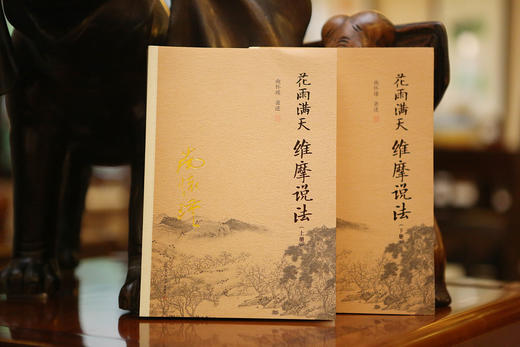 花雨满天
维摩说法
(上册)
南怀瑾 著述
南怀瑾
花雨满天
维摩说法
(下册)
南怀瑾 著述